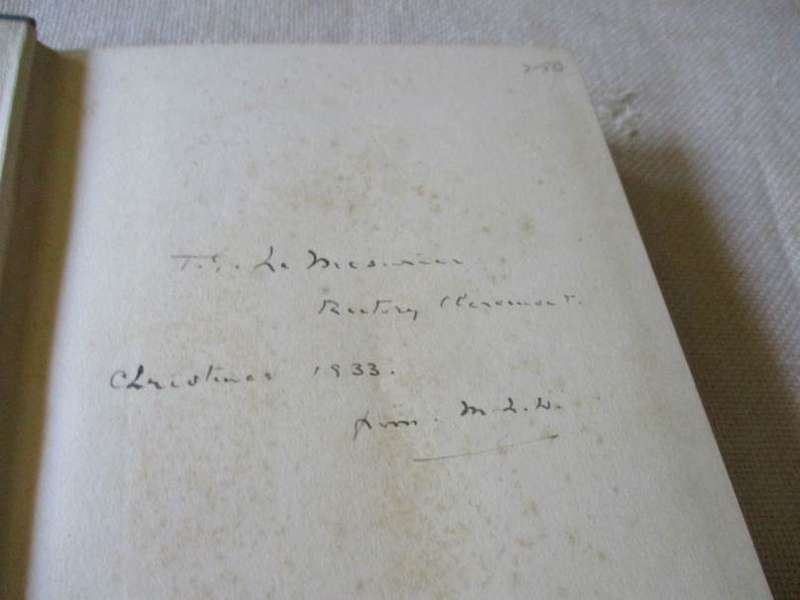 2-50
T.G. Le Mesurier
Rectory Claremont.
Christmas 1933.
from. M.L.W.